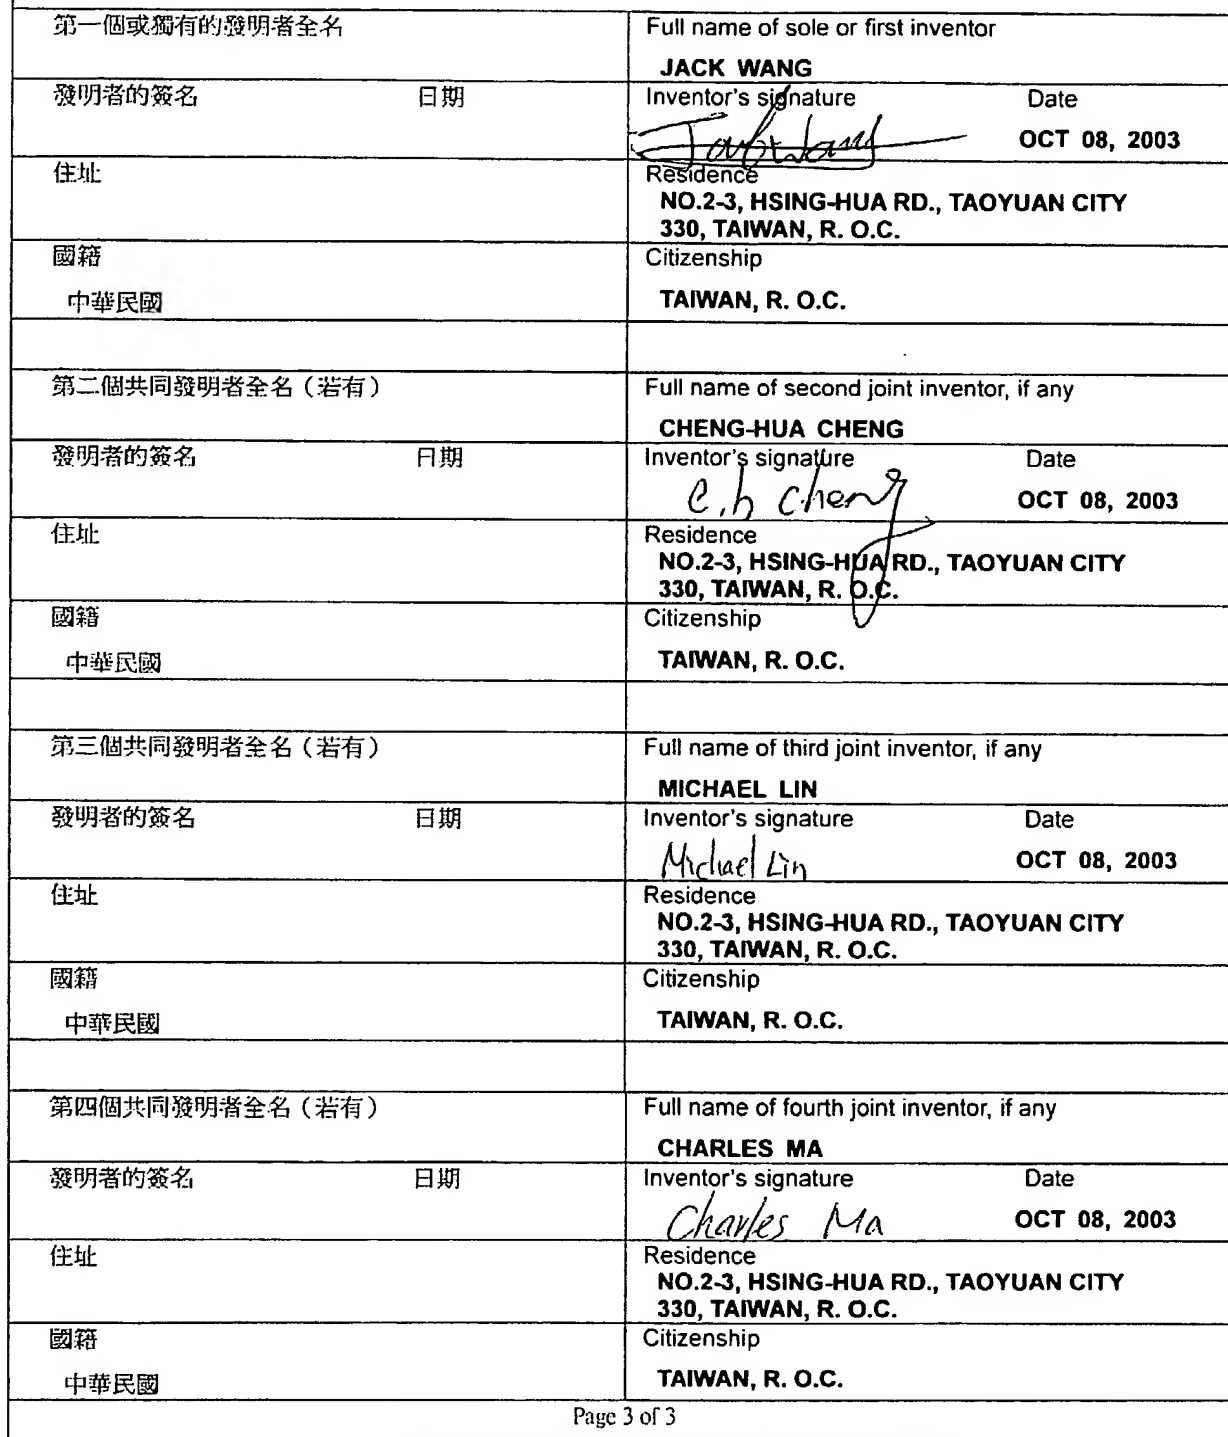 第一個或獨有的發明者全名 Full name of sole or first inventor
JACK WANG
發明者的簽名 日期 Inventor's signature Date
Jack Wang OCT 08, 2003
住址 Residence
NO.2-3, HSING-HUA RD., TAOYUAN CITY
330, TAIWAN, R. O.C.
國籍 Citizenship
中華民國 TAIWAN, R. O.C.
第二個共同發明者全名（若有） Full name of second joint inventor, if any
CHENG-HUA CHENG
發明者的簽名 日期 Inventor's signature Date
C.h Cheng OCT 08, 2003
住址 Residence
NO.2-3, HSING-HUA RD., TAOYUAN CITY
330, TAIWAN, R. O.C.
國籍 Citizenship
中華民國 TAIWAN, R. O.C.
第三個共同發明者全名（若有） Full name of third joint inventor, if any
MICHAEL LIN
發明者的簽名 日期 Inventor's signature Date
Michael Lin OCT 08, 2003
住址 Residence
NO.2-3, HSING-HUA RD., TAOYUAN CITY
330, TAIWAN, R. O.C.
國籍 Citizenship
中華民國 TAIWAN, R. O.C.
第四個共同發明者全名（若有） Full name of fourth joint inventor, if any
CHARLES MA
發明者的簽名 日期 Inventor's signature Date
Charles Ma OCT 08, 2003
住址 Residence
NO.2-3, HSING-HUA RD., TAOYUAN CITY
330, TAIWAN, R. O.C.
國籍 Citizenship
中華民國 TAIWAN, R. O.C.
Page 3 of 3